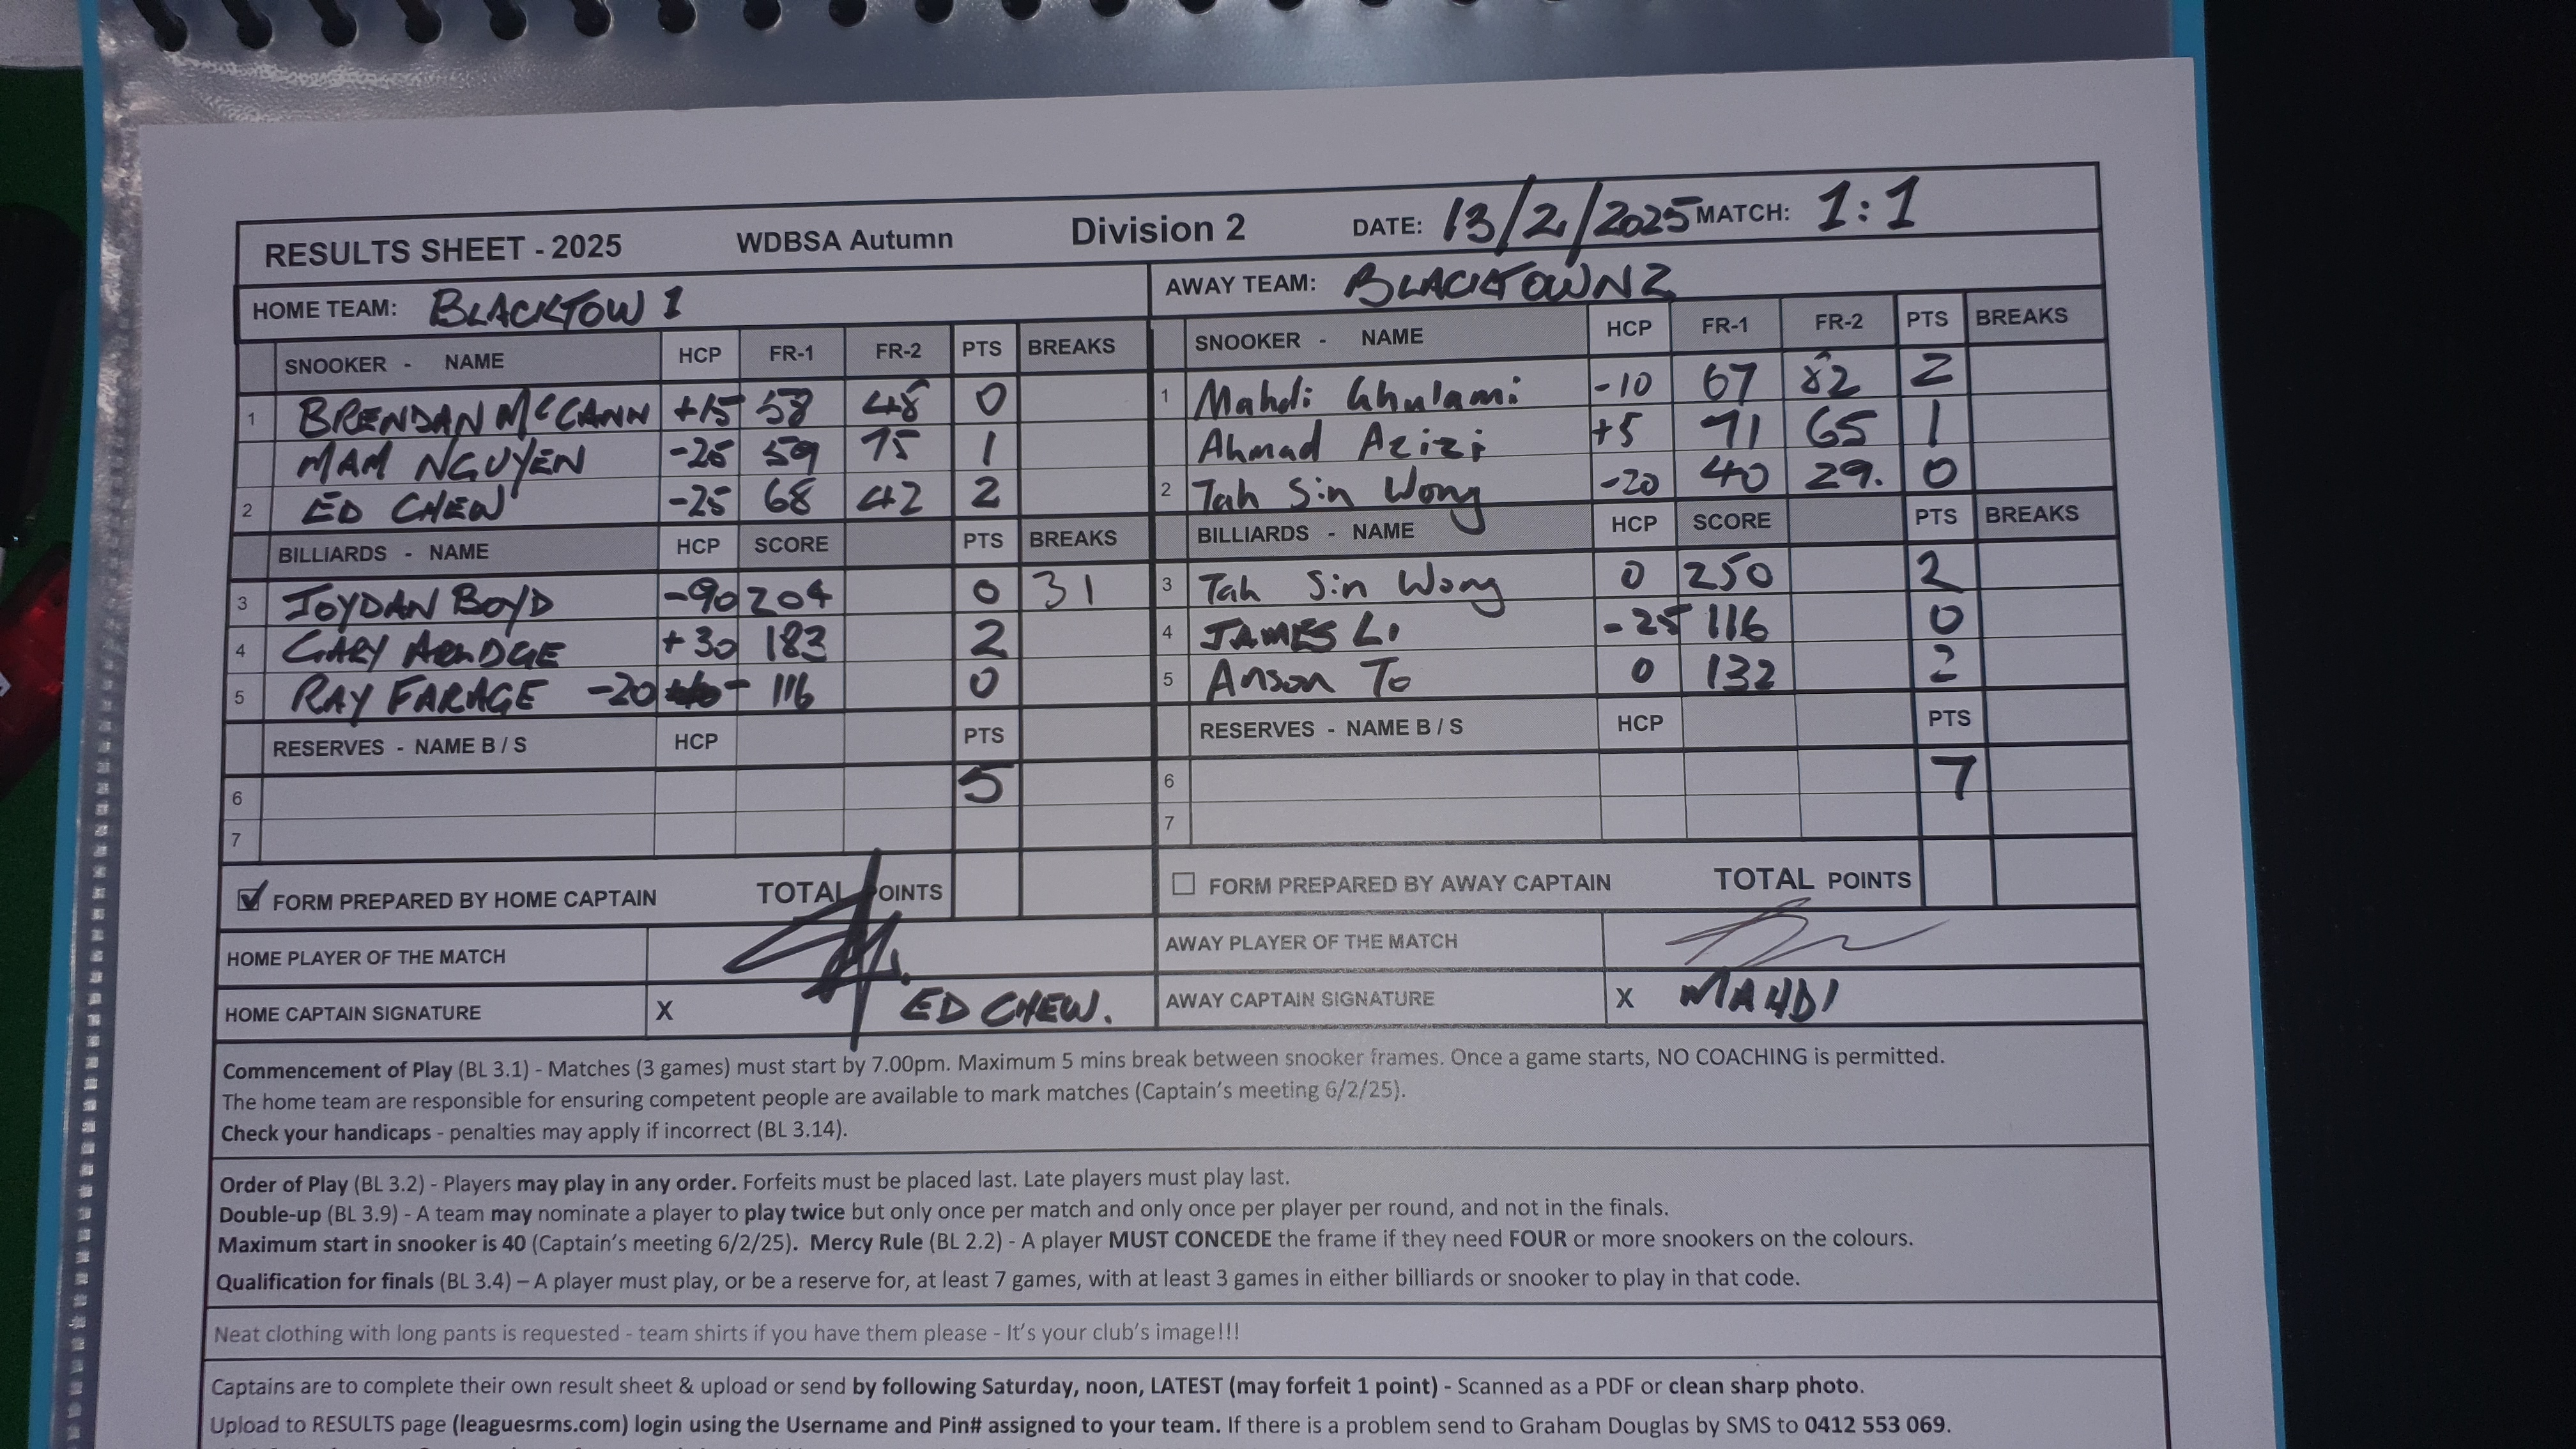 RESULTS SHEET - 2025 WDBSA Autumn Division 2 DATE: 13/2/2025 MATCH: 1:1
HOME TEAM: BLACKTOW 1 AWAY TEAM: BLACKTOWN 2
SNOOKER - NAME HCP FR-1 FR-2 PTS BREAKS SNOOKER - NAME HCP FR-1 FR-2 PTS BREAKS
1 BRENDAN McCANN +15 58 48 0 1 Mahdi Ghulami -10 67 82 2
MAM NGUYEN -25 59 75 1 Ahmad Azizi +5 71 65 1
2 ED CHEW -25 68 42 2 2 Tah Sin Wong -20 40 29. 0
BILLIARDS - NAME HCP SCORE PTS BREAKS BILLIARDS - NAME HCP SCORE PTS BREAKS
3 JOYDAN BOYD -90 204 0 31 3 Tah Sin Wong 0 250 2
4 GARY +30 183 2 4 JAMES LI -25 116 0
5 RAY FARAGE -20 116 0 5 Anson To 0 132 2
RESERVES - NAME B / S HCP PTS RESERVES - NAME B / S HCP PTS
6 5 6 7
7 7
FORM PREPARED BY HOME CAPTAIN TOTAL POINTS FORM PREPARED BY AWAY CAPTAIN TOTAL POINTS
HOME PLAYER OF THE MATCH AWAY PLAYER OF THE MATCH
HOME CAPTAIN SIGNATURE X ED CHEW. AWAY CAPTAIN SIGNATURE X MAHDI
Commencement of Play (BL 3.1) - Matches (3 games) must start by 7.00pm. Maximum 5 mins break between snooker frames. Once a game starts, NO COACHING is permitted.
The home team are responsible for ensuring competent people are available to mark matches (Captain's meeting 6/2/25).
Check your handicaps - penalties may apply if incorrect (BL 3.14).
Order of Play (BL 3.2) - Players may play in any order. Forfeits must be placed last. Late players must play last.
Double-up (BL 3.9) - A team may nominate a player to play twice but only once per match and only once per player per round, and not in the finals.
Maximum start in snooker is 40 (Captain's meeting 6/2/25). Mercy Rule (BL 2.2) - A player MUST CONCEDE the frame if they need FOUR or more snookers on the colours.
Qualification for finals (BL 3.4) – A player must play, or be a reserve for, at least 7 games, with at least 3 games in either billiards or snooker to play in that code.
Neat clothing with long pants is requested - team shirts if you have them please - It's your club's image!!!
Captains are to complete their own result sheet & upload or send by following Saturday, noon, LATEST (may forfeit 1 point) - Scanned as a PDF or clean sharp photo.
Upload to RESULTS page (leaguesrms.com) login using the Username and Pin# assigned to your team. If there is a problem send to Graham Douglas by SMS to 0412 553 069.